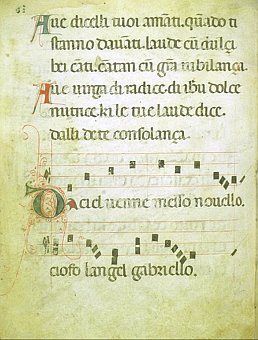 Aue dicelli tuoi amãti. quãdo ti
stanno dauãti. laude cũ dulçi
bei cãti. cãtan cũ grã iubilança.
Aue uirga di radice. di ihũ dolce
nutrice. ki le tue laude dice.
dalli dete consolança.
Da ciel uenne messo nouello.
ciofo langel gabriello.